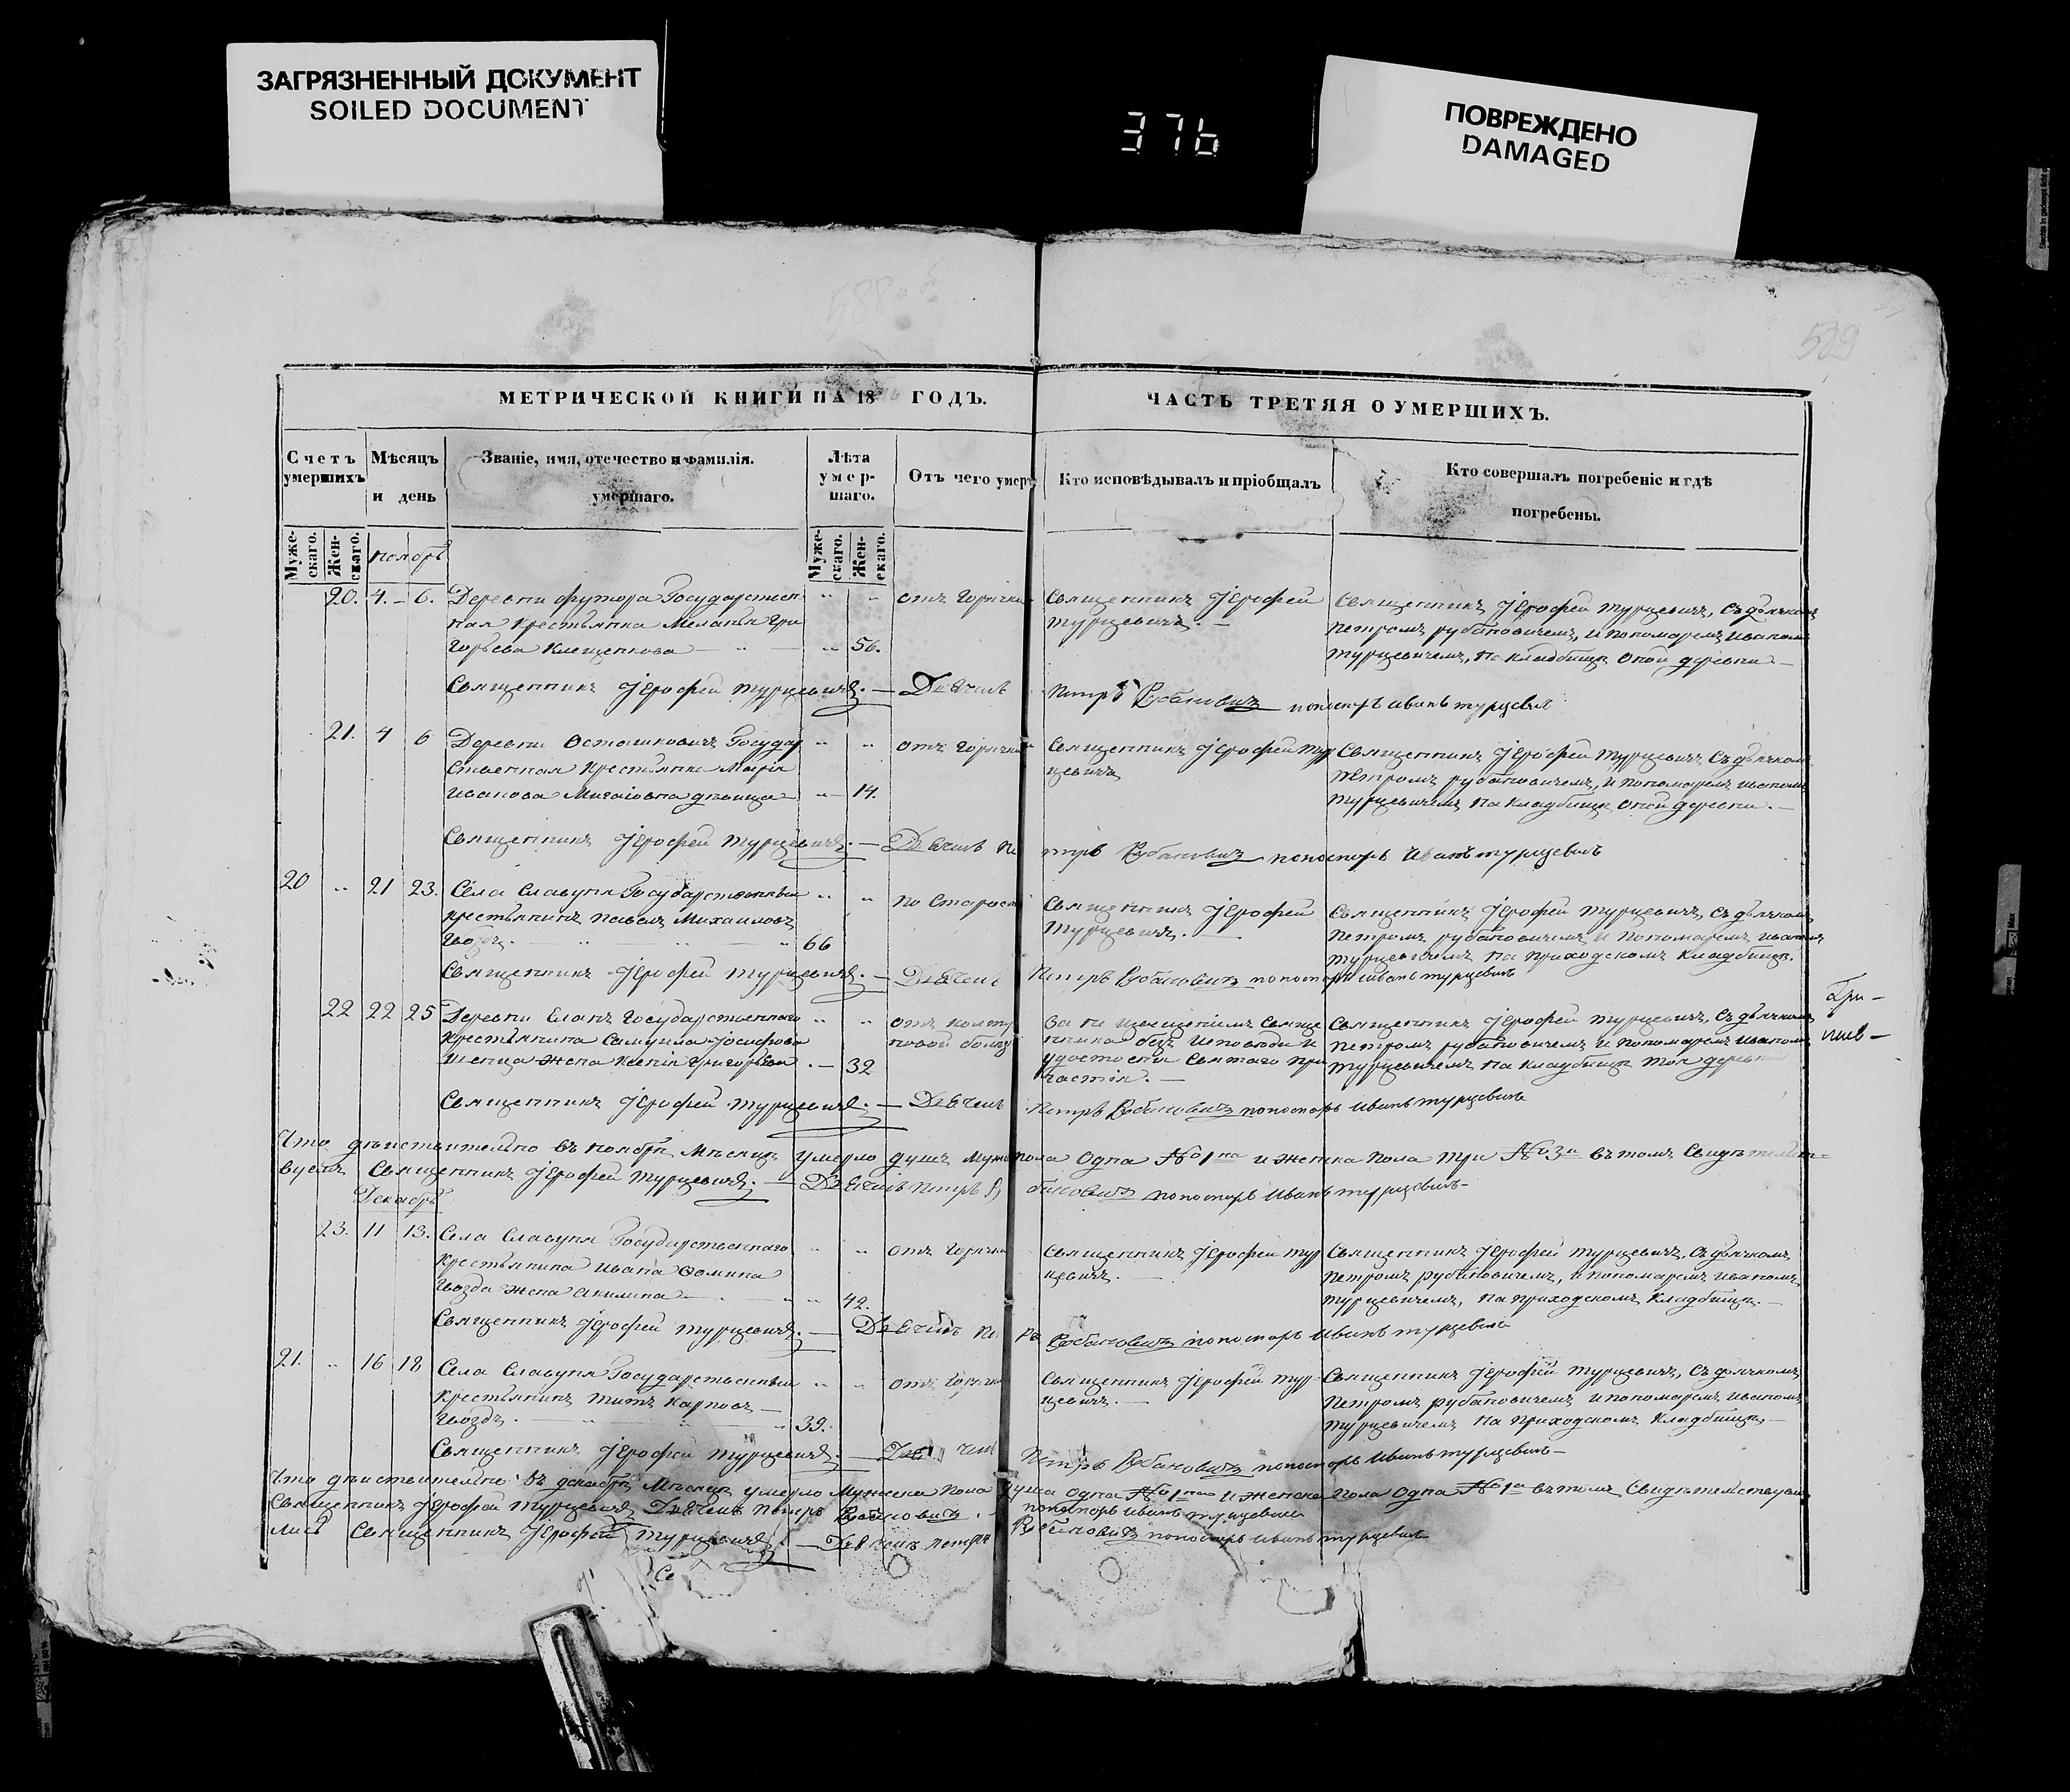 ЗАГРЯЗНЕННЫЙ ДОКУМЕНТ
SOILED DOCUMENT
376
ПОВРЕЖДЕНО
DAMAGED
588
589
МЕТРИЧЕСКОЙ КНИГИ НА 18 ГОДЪ.
ЧАСТЬ ТРЕТЯЯ О УМЕРШИХЪ.
Счетъ умершихъ
Мѣсяцъ и день
Званіе, имя, отечество и фамилія. умершаго.
Лѣта умер-шаго.
Отъ чего умеръ
Кто исповѣдывалъ и пріобщалъ
Кто совершалъ погребеніе и гдѣ погребены.
Муже-скаго.
Жен-скаго.
Ноябрь
Муже-скаго.
Жен-скаго.
20. 4. - 6. Деревни футора Государствен
ная Крестьянка Меланья Гри
горьева Клещенкова 56.
отъ горячки
Священникъ Іерофей
Турцевичъ.
Священникъ Іерофей Турцевичъ, съ дьячкомъ
Петромъ Рубановичемъ, и Пономаремъ Иваномъ
Турцевичемъ, на кладбищѣ оной деревни.
Священникъ Іерофей Турцевичъ. — Дьячокъ Петръ Рубановичъ пономаръ Иванъ Турцевичъ
21. 4 6 Деревни Осташковичъ Государ
ственная Крестьянка Марія
Иванова дѣвица 14.
отъ горячки
Священникъ Іерофей Тур
цевичъ
Священникъ Іерофей Турцевичъ, съ дьячкомъ
Петромъ Рубановичемъ, и Пономаремъ Иваномъ
Турцевичемъ на кладбищѣ оной деревни.
Священникъ Іерофей Турцевичъ. — Дьячокъ Петръ Рубановичъ пономаръ Иванъ Турцевичъ
20 21 23. Села Славуня Государственный
Крестьянинъ Павелъ Михаиловъ
Гвоздъ. 66
по старости
Священникъ Іерофей
Турцевичъ.
Священникъ Іерофей Турцевичъ, съ дьячкомъ
Петромъ Рубановичемъ и Пономаремъ Иваномъ
Турцевичемъ на приходскомъ кладбищѣ.
Священникъ Іерофей Турцевичъ. — Дьячокъ Петръ Рубановичъ пономаръ Иванъ Турцевичъ
22 22 25 Деревни Еланъ Государственнаго
Крестьянина Самуила Іосифова
жена Ксенія Григорьева 32
Священникъ Іерофей Турцевичъ, съ дьячкомъ
Петромъ Рубановичемъ и Пономаремъ Иваномъ
Турцевичемъ на кладбищѣ той деревни
Священникъ Іерофей Турцевичъ. — Дьячокъ Петръ Рубановичъ пономаръ Иванъ Турцевичъ
Что дѣйствительно въ Ноябрѣ Мѣсяцѣ умерло душъ Муж пола одна №1 и женска пола три №3 въ томъ Свидѣтельст=
вуемъ Священникъ Іерофей Турцевичъ. — Дьячокъ Петръ Рубановичъ пономаръ Иванъ Турцевичъ
Декабрь
23. 11 13. Села Славуня Государственнаго
Крестьянина Ивана Ѳомина
Гвозда жена Акилина 42.
отъ горячки
Священникъ Іерофей Тур
цевичъ.
Священникъ Іерофей Турцевичъ, съ дьячкомъ
Петромъ Рубановичемъ, и Пономаремъ Иваномъ
Турцевичемъ, на приходскомъ кладбищѣ.
Священникъ Іерофей Турцевичъ. — Дьячокъ Петръ Рубановичъ пономаръ Иванъ Турцевичъ
21. 16 18 Села Славуня Государственный
Крестьянинъ Титъ Карповъ
Гвоздъ. 39.
отъ горячки
Священникъ Іерофей Тур
цевичъ.
Священникъ Іерофей Турцевичъ, съ дьячкомъ
Петромъ Рубановичемъ и Пономаремъ Иваномъ
Турцевичемъ на приходскомъ кладбищѣ.
Священникъ Іерофей Турцевичъ. — Дьячокъ Петръ Рубановичъ пономаръ Иванъ Турцевичъ
Что дѣйствительно въ декабрѣ Мѣсяцѣ умерло Мужска пола душа одна №1 и женска пола одна №1 въ томъ Свидѣтельствуемъ
Священникъ Іерофей Турцевичъ Дьячокъ Петръ Рубановичъ. пономаръ Иванъ Турцевичъ
Священникъ Іерофей Турцевичъ. — Дьячокъ Петръ Рубановичъ пономаръ Иванъ Турцевичъ